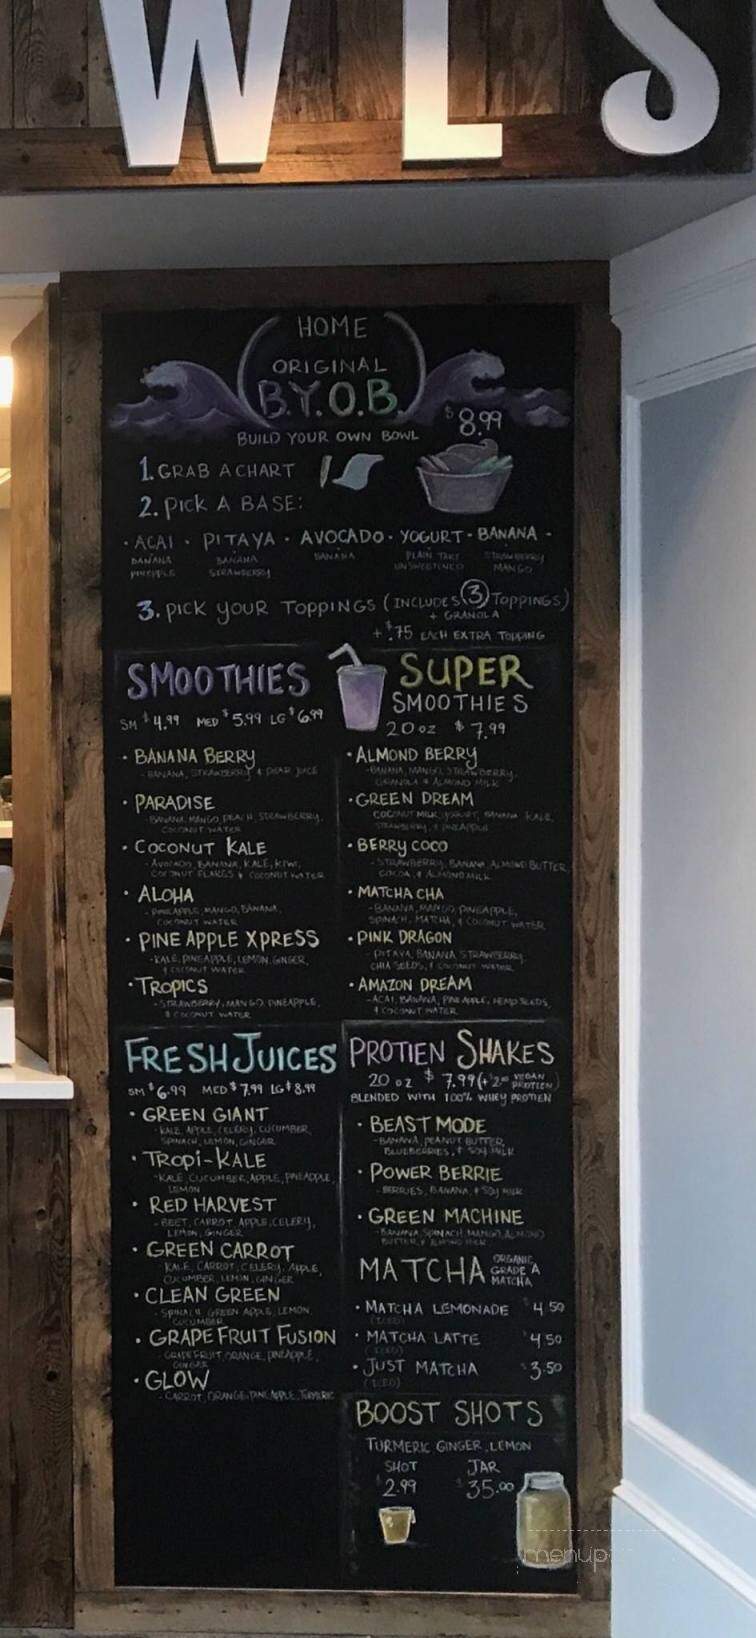 WLS
HOME
ORIGINAL
B.Y.O.B.
BUILD YOUR OWN BOWL
$8.99
1. GRAB A CHART
2. PICK A BASE:
· ACAI · PITAYA · AVOCADO · YOGURT · BANANA ·
BANANA BANANA BANANA PLAIN TART STRAWBERRY
PINEAPPLE STRAWBERRY UNSWEETENED MANGO
3. PICK YOUR TOPPINGS (INCLUDES 3 TOPPINGS)
+ GRANOLA
+ $.75 EACH EXTRA TOPPING
SMOOTHIES
SM $4.99 MED $5.99 LG $6.99
· BANANA BERRY
- BANANA, STRAWBERRY & PEAR JUICE
· PARADISE
- BANANA, MANGO, PEACH, STRAWBERRY,
COCONUT WATER
· COCONUT KALE
- AVOCADO, BANANA, KALE, KIWI,
COCONUT FLAKES & COCONUT WATER
· ALOHA
- PINEAPPLE, MANGO, BANANA,
COCONUT WATER
· PINE APPLE XPRESS
- KALE, PINEAPPLE, LEMON, GINGER,
& COCONUT WATER
· TROPICS
- STRAWBERRY, MANGO, PINEAPPLE,
& COCONUT WATER
SUPER
SMOOTHIES
20 oz $7.99
· ALMOND BERRY
- BANANA, MANGO, STRAWBERRY,
GRANOLA & ALMOND MILK
· GREEN DREAM
COCONUT MILK, YOGURT, BANANA, KALE,
STRAWBERRY, & PINEAPPLE
· BERRY COCO
- STRAWBERRY, BANANA, ALMOND BUTTER,
COCOA, & ALMOND MILK
· MATCHA CHA
- BANANA, MANGO, PINEAPPLE,
SPINACH, MATCHA, & COCONUT WATER
· PINK DRAGON
- PITAYA, BANANA, STRAWBERRY,
CHIA SEEDS, & COCONUT WATER
· AMAZON DREAM
- ACAI, BANANA, PINEAPPLE, HEMP SEEDS,
& COCONUT WATER
FRESH JUICES
SM $6.99 MED $7.99 LG $8.99
· GREEN GIANT
- KALE, APPLE, CELERY, CUCUMBER,
SPINACH, LEMON, GINGER
· TROPI-KALE
- KALE, CUCUMBER, APPLE, PINEAPPLE,
LEMON
· RED HARVEST
- BEET, CARROT, APPLE, CELERY,
LEMON, GINGER
· GREEN CARROT
- KALE, CARROT, CELERY, APPLE,
CUCUMBER, LEMON, GINGER
· CLEAN GREEN
- SPINACH, GREEN APPLE, LEMON,
CUCUMBER
· GRAPEFRUIT FUSION
- GRAPEFRUIT, ORANGE, PINEAPPLE,
GINGER
· GLOW
- CARROT, ORANGE, PINEAPPLE, TURMERIC
PROTIEN SHAKES
20 oz $7.99 (+$2.00 VEGAN PROTIEN)
BLENDED WITH 100% WHEY PROTIEN
· BEAST MODE
- BANANA, PEANUT BUTTER,
BLUEBERRIES, & SOY MILK
· POWER BERRIE
- BERRIES, BANANA, & SOY MILK
· GREEN MACHINE
- BANANA, SPINACH, MANGO, ALMOND
BUTTER, & ALMOND MILK
MATCHA ORGANIC GRADE A MATCHA
· MATCHA LEMONADE $4.50
(ICED)
· MATCHA LATTE $4.50
(ICED)
· JUST MATCHA $3.50
(ICED)
BOOST SHOTS
TURMERIC, GINGER, LEMON
SHOT JAR
$2.99 $35.00
menupix